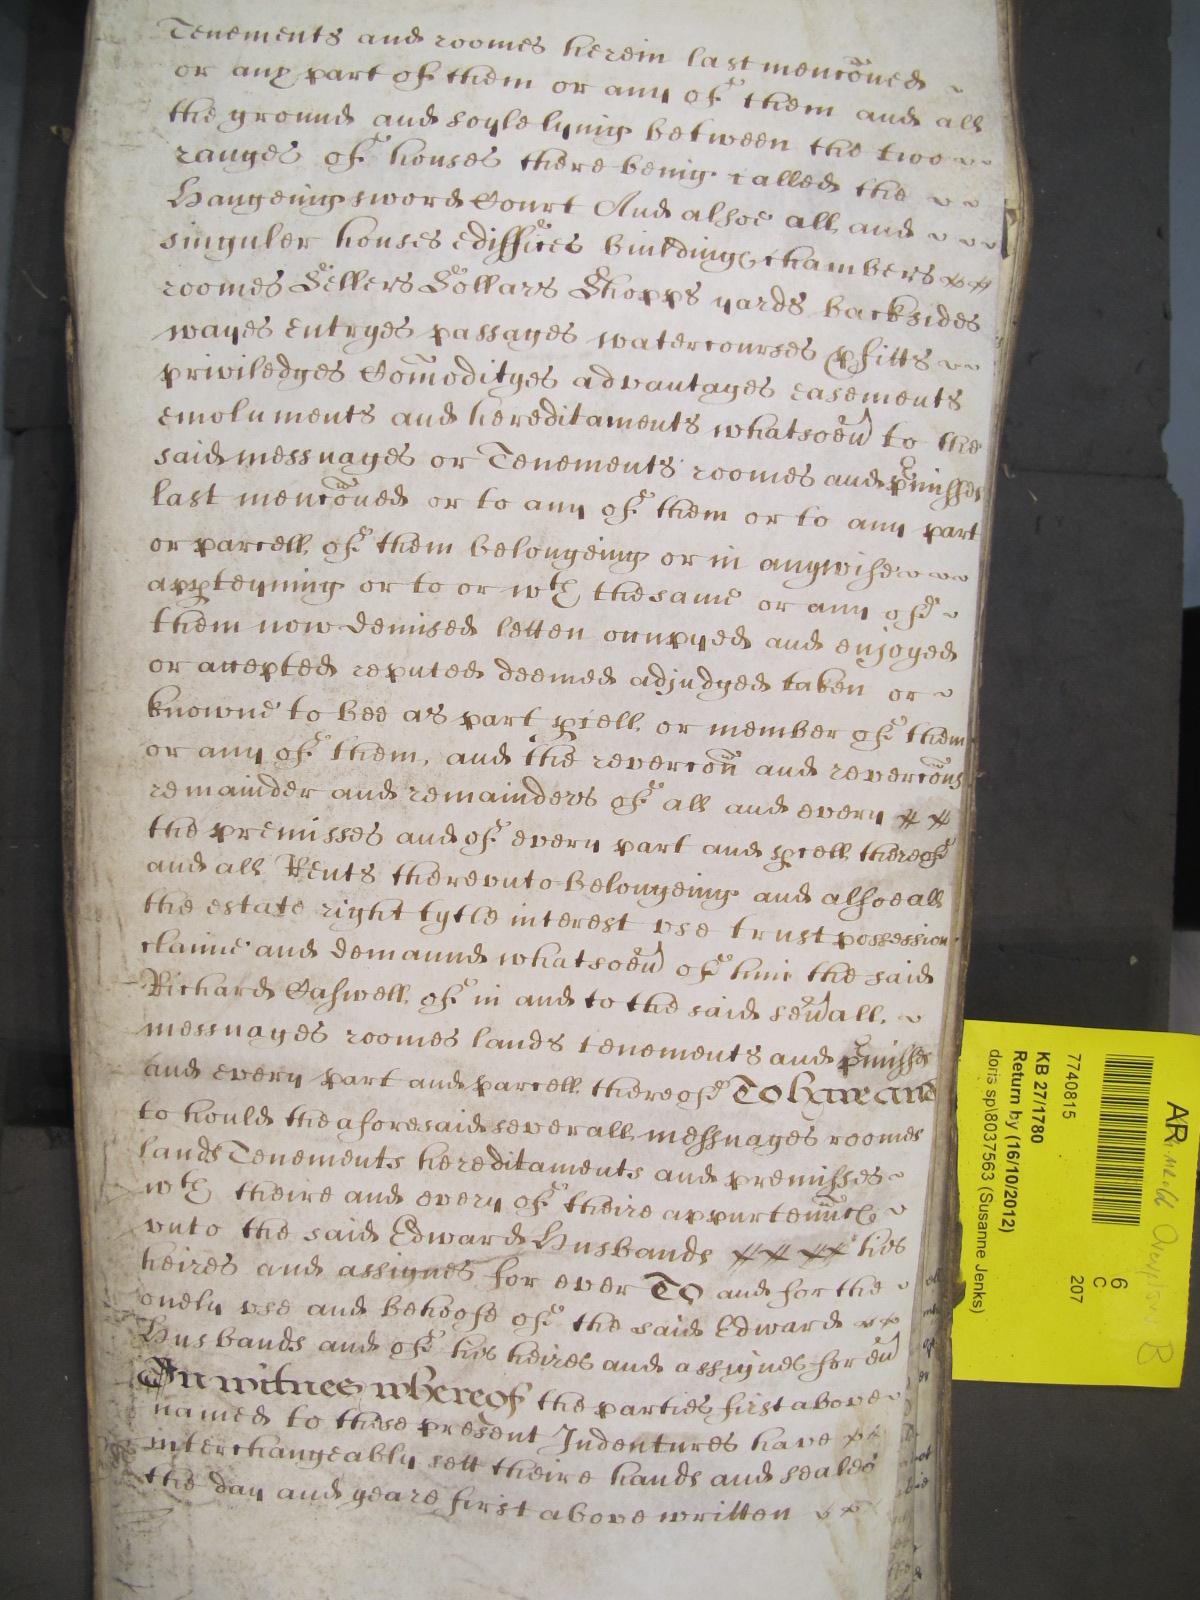 Tenements and roomes herein last menc̃oned
or any part of them or any of them and all
the ground and soyle lying between the two
ranges of houses there being called the
Hangeing sword Court And alsoe all and
singuler houses ediffices buildings chambers
roomes Sellers Sollars Shopps yards backsides
wayes entryes passages watercourses pfitts
priviledges Com̃odityes advantages easements
emoluments and hereditaments whatsoeũ to the
said messuages or Tenements roomes and p̃misses
last menc̃oned or to any of them or to any part
or parcell of them belongeing or in anywise
appteyning or to or wth the same or any of
them now demised letten occupyed and enjoyed
or accepted reputed deemed adjudged taken or
knowne to bee as part pcell or member of them
or any of them, and the reverc̃on and reverc̃ons
remainder and remainders of all and every
the premisses and of every part and pcell thereof
and all Rents therevnto belongeing and alsoe all
the estate right tytle interest vse trust possession
claime and demaund whatsoeũ of him the said
Richard Caswell of in and to the said seũall
messuages roomes lands tenements and p̃misses
and every part and parcell thereof To have and
to hould the aforesaid severall messuages roomes
lands Tenements hereditaments and premisses
wth theire and every of theire appurtenñces
vnto the said Edward Husbands his
heires and assignes for ever To and for the
onely vse and behoofe of the said Edward
Husbands and of his heires and assignes for eũ
In witnes whereof the parties first above
named to these present Indentures have
interchangeably sett theire hands and seales
the day and yeare first above written
7740815
KB 27/1780
Return by (16/10/2012)
doris sp\8037563 (Susanne Jenks)
6
C
207
AR
B